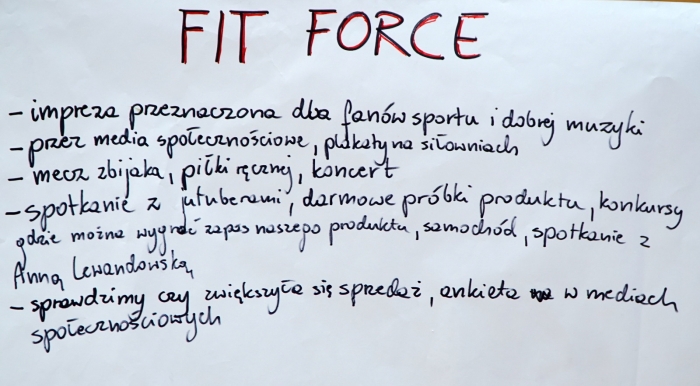 FIT FORCE
- impreza przeznaczona dla fanów sportu i dobrej muzyki
- przez media społecznościowe, plakaty na siłowniach
- mecz zbijaka, piłki ręcznej, koncert
- spotkanie z jutuberami, darmowe próbki produktu, konkursy
gdzie można wygrać zapas naszego produktu, samochód, spotkanie z
Anną Lewandowską
- sprawdzimy czy zwiększyła się sprzedaż, ankieta w mediach
społecznościowych